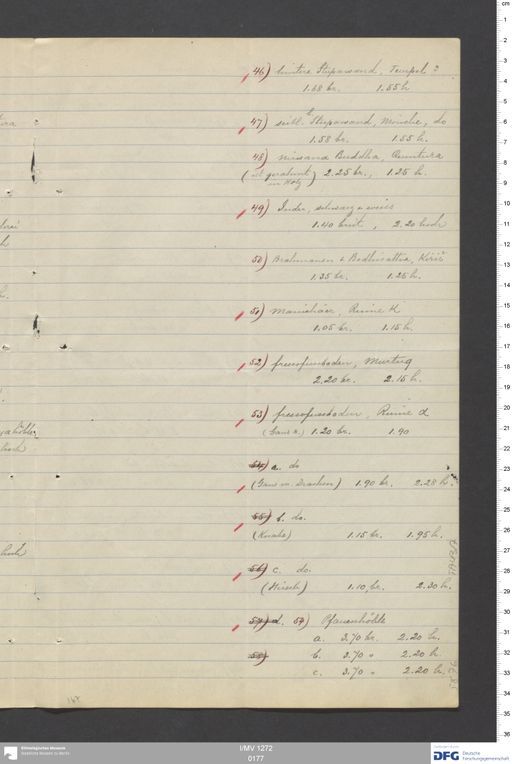 46) hintere Stupawand, Tempel ?
1.58 br. 1.55 h
47) seitl. Stupawand, Mönche, do
1.58 br. 1.55 h.
48) Nirvana Buddha, Qumtura
(ist gerahmt in Holz) 2.25 br., 1.25 h.
49) Inder, schwarz u weiss
1.40 breit, 2.20 hoch
50) Brahmanen & Bodhisattva, Kiriš
1.35 br. 1.25 h.
51) Manichäer, Ruine K
1.05 br. 1.15 h.
52) Frescofussboden, Murtuq
2.20 br. 2.15 h.
53) Frescofussboden, Ruine α
1.20 br. 1.90
54) a. do
(Gans m. Drachen) 1.90 br. 2.28 h.
55) b. do.
(Knabe) 1.15 br. 1.95 h.
56) c. do.
(Hirsch) 1.10 br. 2.30 h.
57) d. 54) Pfauenhöhle
a. 3.70 br. 2.20 h.
58) b. 3.70 " 2.20 h.
c. 3.70 " 2.20 h.
hoch
hoch
Ethnologisches Museum
Staatliche Museen zu Berlin
I/MV 1272
0177
DFG Deutsche Forschungsgemeinschaft
cm
1
2
3
4
5
6
7
8
9
10
11
12
13
14
15
16
17
18
19
20
21
22
23
24
25
26
27
28
29
30
31
32
33
34
35
36